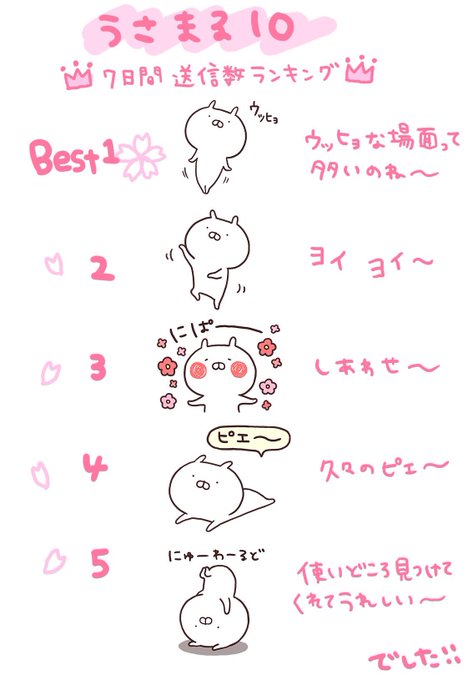 うさまる10
7日間 送信数ランキング
Best1
ウッヒョ
ウッヒョな場面って
多いのね〜
2
ヨイ ヨイ〜
3
にぱーーー
しあわせ〜
4
ピエ〜
久々のピエ〜
5
にゅーわーるど
使いどころ見つけて
くれてうれしい〜
でした!!